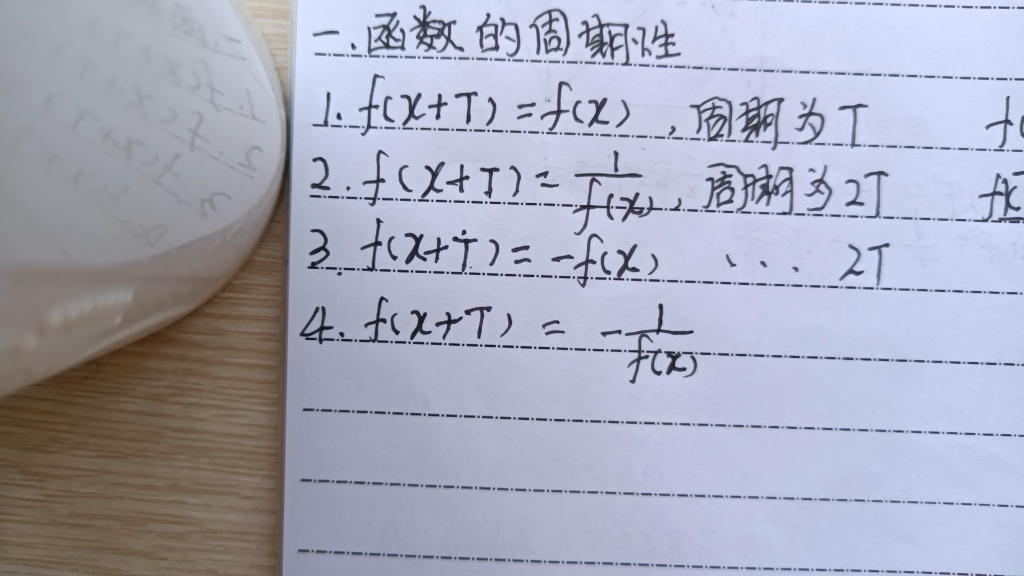 一.函数的周期性
1. f(x+T)=f(x),周期为T
2. f(x+T)=1/f(x),周期为2T
3. f(x+T)=-f(x) ... 2T
4. f(x+T) = -1/f(x)